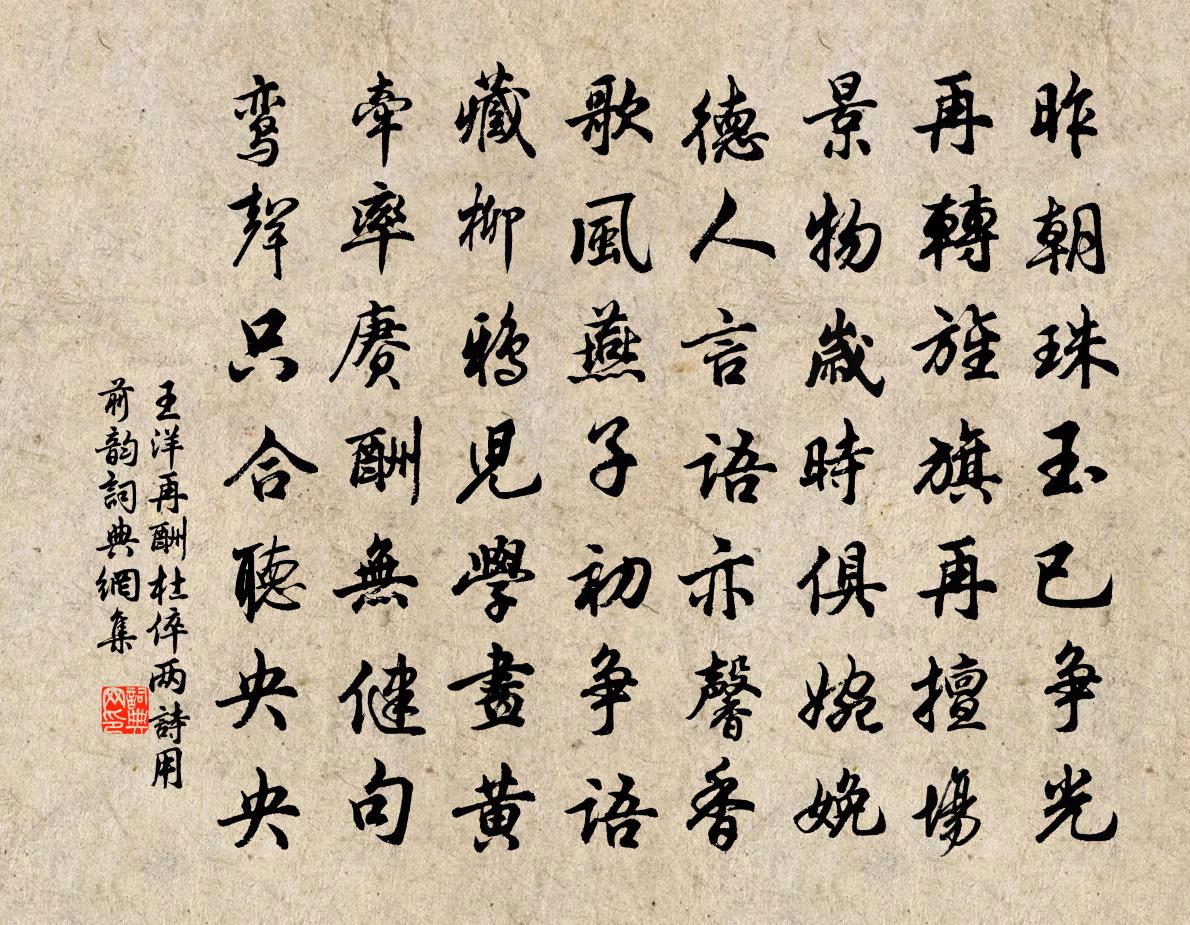 昨朝珠玉已争光
再轉旌旗再擅場
景物歲時俱婉娩
德人言語亦馨香
歌風燕子初争語
藏柳鴉兒學畫黄
牽率賡酬無健句
鸾聲只合聽央央
王洋再酬杜倅两詩用
前韵詞典網集
詞典网印